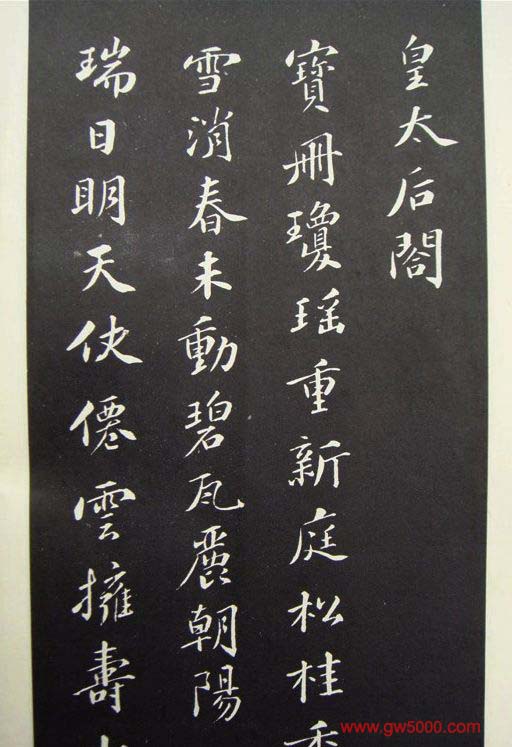 皇太后閣
寶冊瓊瑤重新庭松桂
雪消春未動碧瓦麗朝陽
瑞日明天仗僊雲擁壽
www.gw5000.com